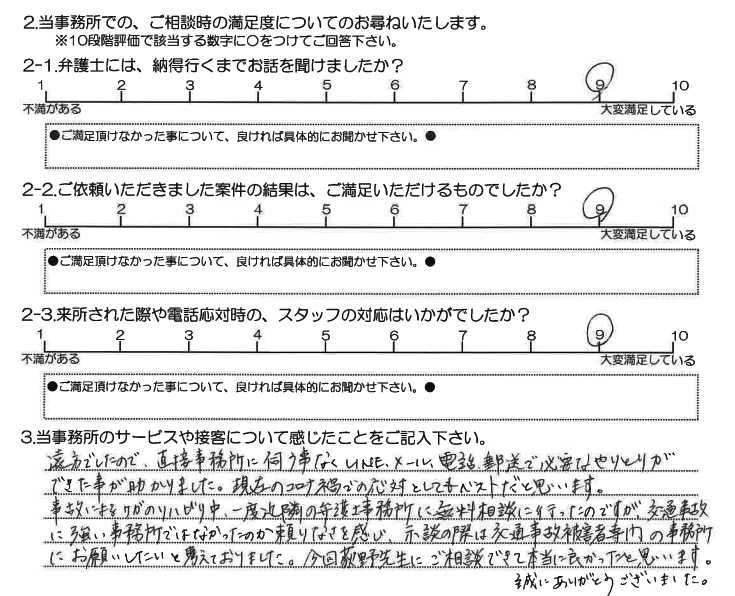 2.当事務所での、ご相談時の満足度についてのお尋ねいたします。
※10段階評価で該当する数字に〇をつけてご回答下さい。
2-1.弁護士には、納得行くまでお話を聞けましたか？
1 2 3 4 5 6 7 8 9 10
不満がある 大変満足している
●ご満足頂けなかった事について、良ければ具体的にお聞かせ下さい。●
2-2.ご依頼いただきました案件の結果は、ご満足いただけるものでしたか？
1 2 3 4 5 6 7 8 9 10
不満がある 大変満足している
●ご満足頂けなかった事について、良ければ具体的にお聞かせ下さい。●
2-3.来所された際や電話応対時の、スタッフの対応はいかがでしたか？
1 2 3 4 5 6 7 8 9 10
不満がある 大変満足している
●ご満足頂けなかった事について、良ければ具体的にお聞かせ下さい。●
3.当事務所のサービスや接客について感じたことをご記入下さい。
遠方でしたので、直接事務所に伺う事なくLINE、メール、電話、郵送で必要なやりとりが
できた事が助かりました。現在のコロナ禍での応対としてもベストだと思います。
事故によるケガのリハビリ中、一度近隣の弁護士事務所に無料相談に行ったのですが、交通事故
に強い事務所ではなかったのか頼りなさを感じ、示談の際は交通事故被害者専門の事務所
にお願いしたいと考えておりました。今回荻野先生にご相談できて本当に良かったと思います。
誠にありがとうございました。